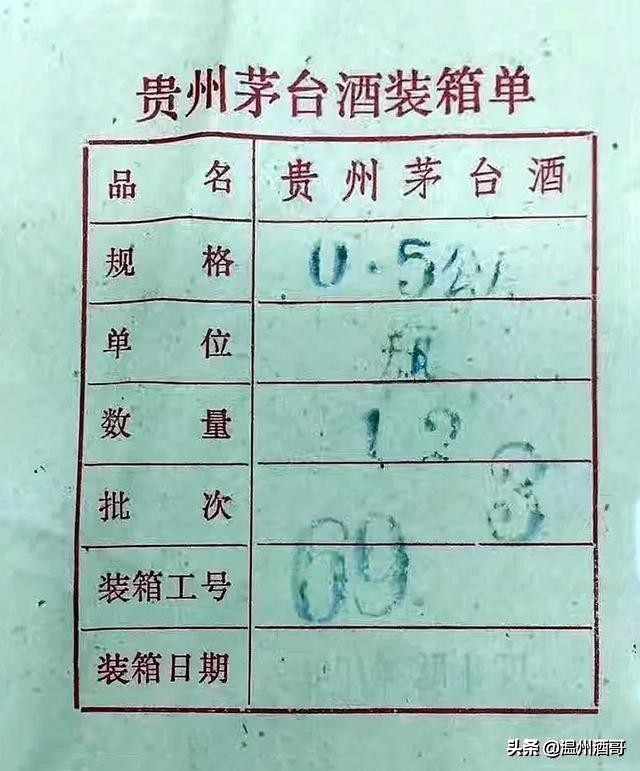 贵州茅台酒装箱单
品名 贵州茅台酒
规格 0.54
单位 瓶
数量 12
批次 3
装箱工号 69
装箱日期
头条 @温州酒哥